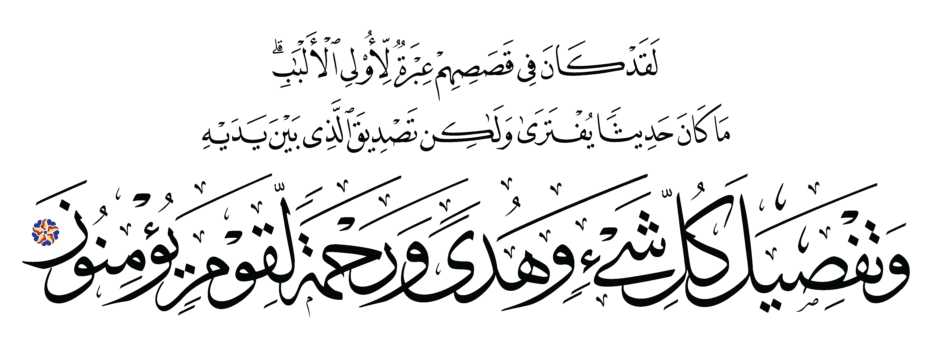 لَقَدْ كَانَ فِى قَصَصِهِمْ عِبْرَةٌ لِّأُو۟لِى ٱلْأَلْبَٰبِ ۗ
مَا كَانَ حَدِيثًا يُفْتَرَىٰ وَلَٰكِن تَصْدِيقَ ٱلَّذِى بَيْنَ يَدَيْهِ
وَتَفْصِيلَ كُلِّ شَىْءٍ وَهُدًى وَرَحْمَةً لِّقَوْمٍ يُؤْمِنُونَ